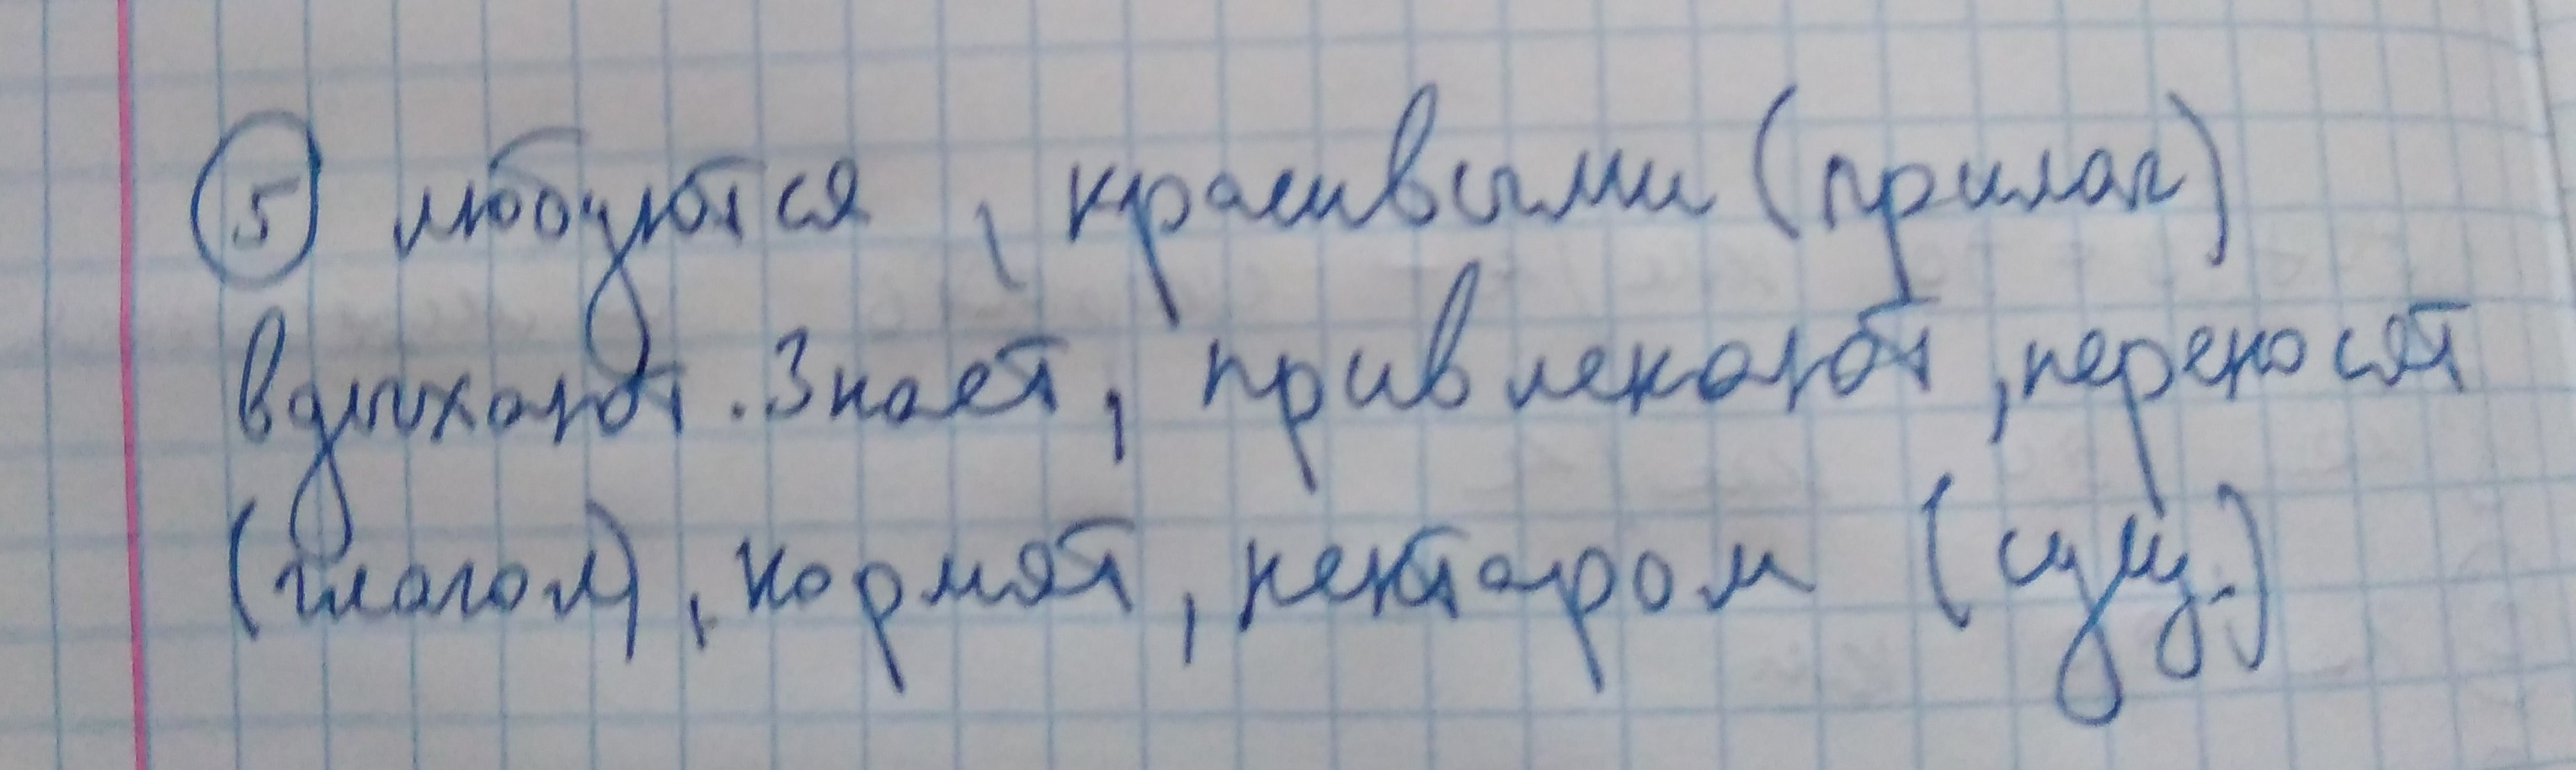 5 любуются, красивыми (прилаг)
вдыхают. Знает, привлекают, переносят
(глагол), кормят, нектаром (сущ.)